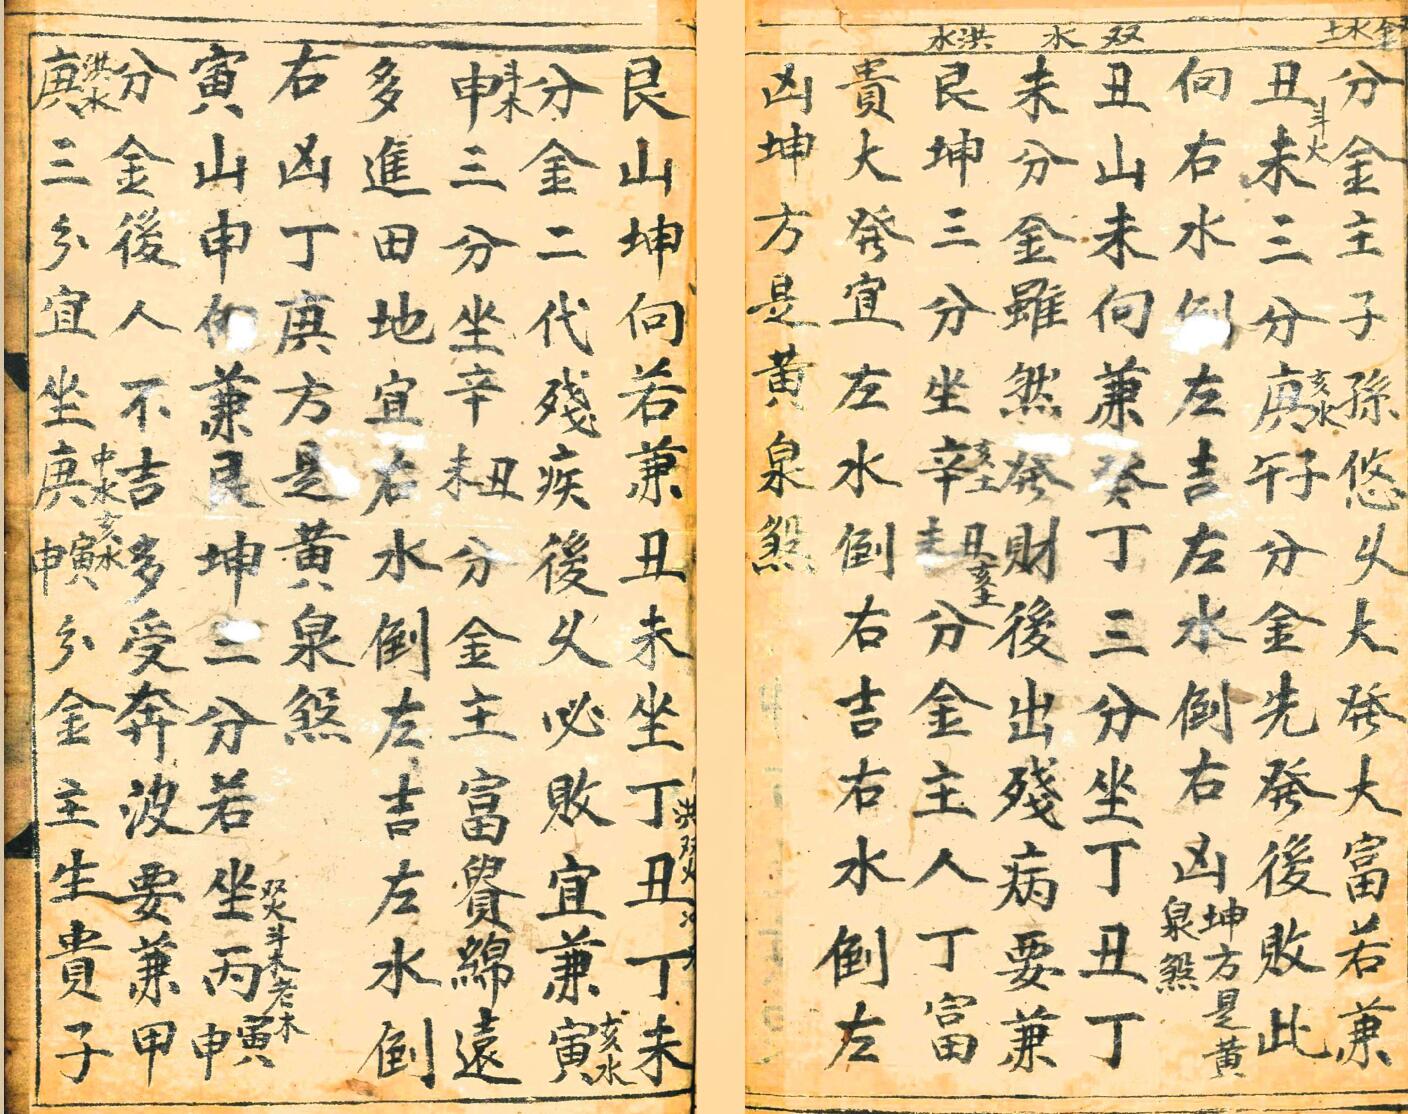 金水土
双水
洪水
分金主子孫悠久大發大富若兼
丑未三分庚午子分金先發後敗此
斗火
亥水
向右水倒左吉左水倒右凶坤方是黃泉煞
丑山未向兼癸丁三分坐丁丑丁
未分金雖然發財後出殘病要兼
艮坤三分坐辛未丑分金主人丁富
亥土
亥土
貴大發宜左水倒右吉右水倒左
凶坤方是黃泉煞
艮山坤向若兼丑未坐丁丑丁未
分金二代殘疾後久必敗宜兼寅
亥水
申三分坐辛未丑分金主富貴綿遠
斗木
多進田地宜右水倒左吉左水倒
右凶丁庚方是黃泉煞
寅山申向兼艮坤三分若坐丙申寅
双火斗木老木
分金後人不吉多受奔波要兼甲
庚三分宜坐庚申寅分金主生貴子
洪水
中水亥水